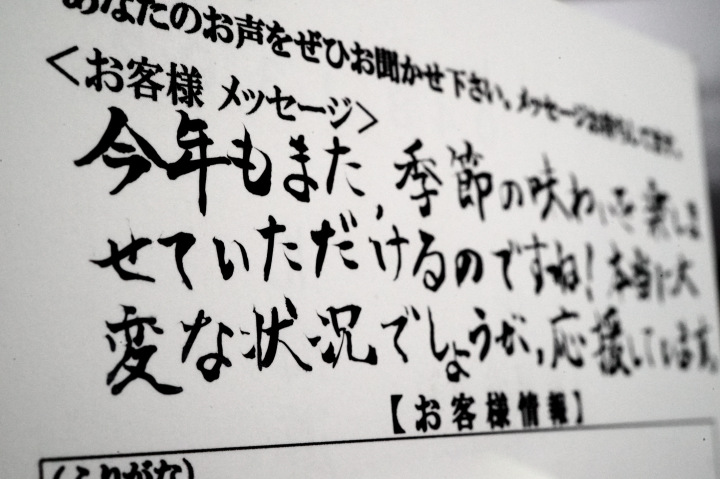 あなたのお声をぜひお聞かせ下さい。メッセージお待ちしてます。
<お客様 メッセージ>
今年もまた、季節の味わいを楽しま
せていただけるのですね!本当に大
変な状況でしょうが、応援しています。
【お客様情報】
(ふりがな)